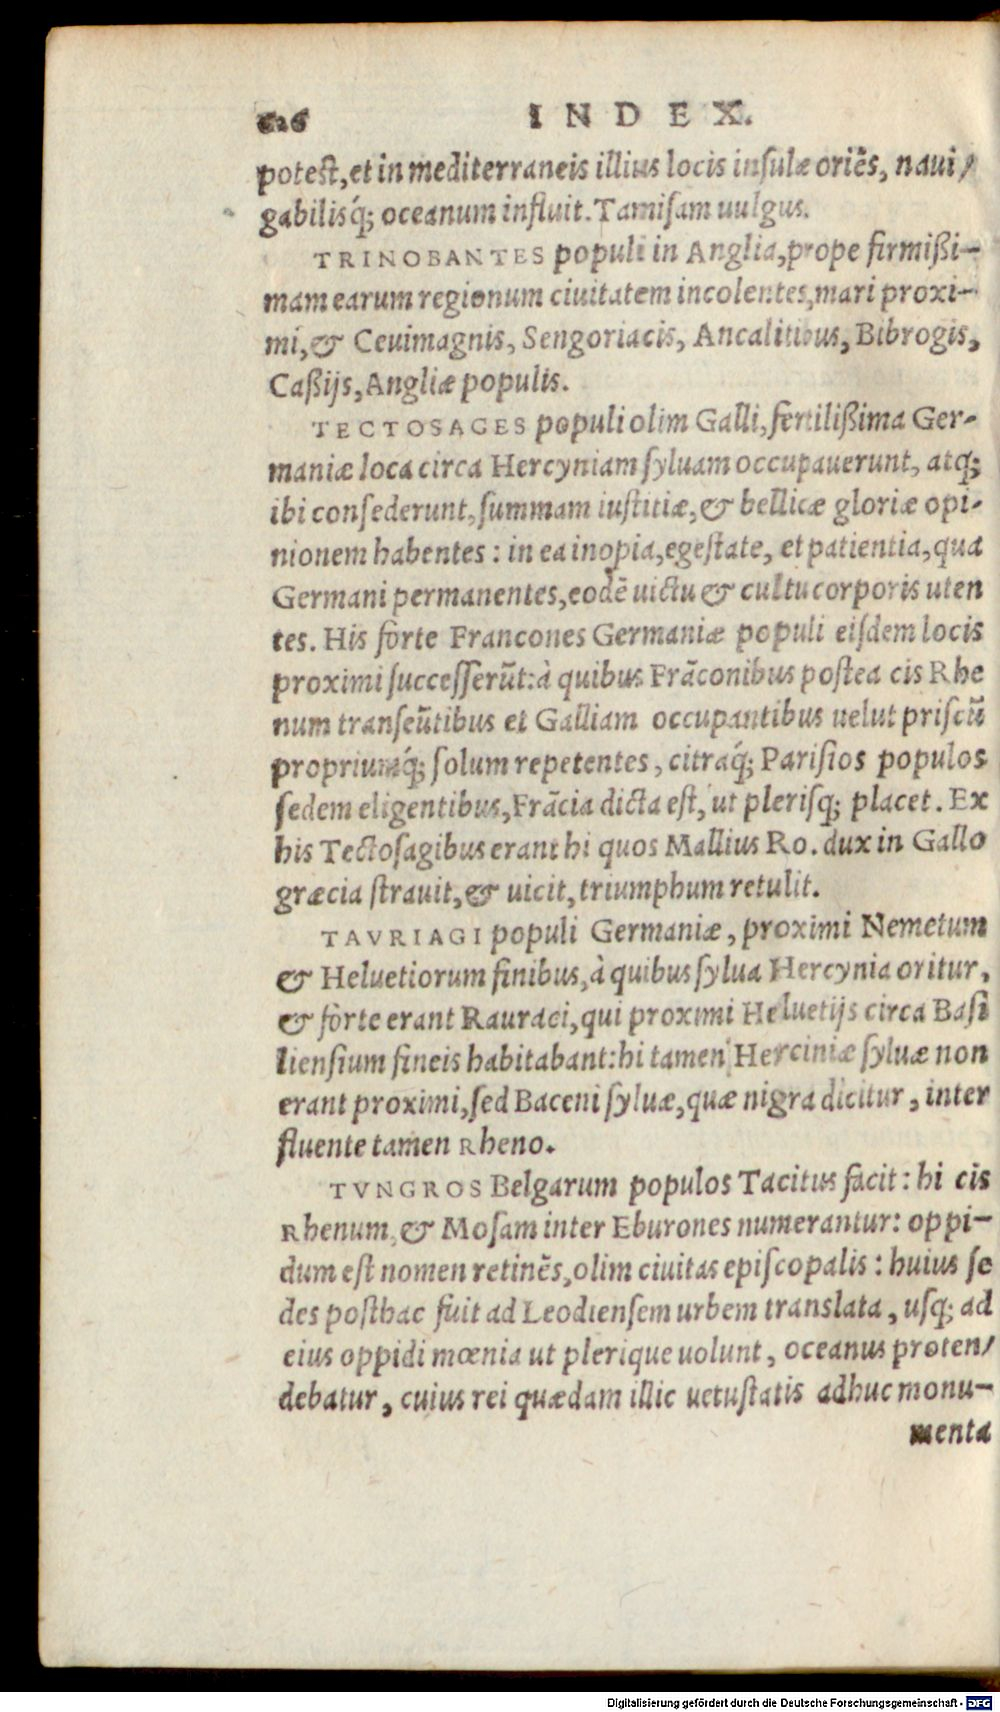 626 INDEX.
potest, et in mediterraneis illius locis insulæ oriẽs, naui/
gabilisq́; oceanum influit. Tamisam uulgus.
TRINOBANTES populi in Anglia, prope firmißi-
mam earum regionum ciuitatem incolentes, mari proxi-
mi, & Ceuimagnis, Sengoriacis, Ancalitibus, Bibrogis,
Caßijs, Angliæ populis.
TECTOSAGES populi olim Galli, fertilißima Ger-
maniæ loca circa Hercyniam syluam occupauerunt, atq;
ibi consederunt, summam iustitiæ, & bellicæ gloriæ opi-
nionem habentes: in ea inopia, egestate, et patientia, qua
Germani permanentes, eodẽ uictu & cultu corporis uten
tes. His forte Francones Germaniæ populi eisdem locis
proximi successerũt: à quibus Frãconibus postea cis Rhe
num transeũtibus et Galliam occupantibus uelut priscũ
propriumq́; solum repetentes, citraq́; Parisios populos
sedem eligentibus, Frãcia dicta est, ut plerisq; placet. Ex
his Tectosagibus erant hi quos Mallius Ro. dux in Gallo
græcia strauit, & uicit, triumphum retulit.
TAVRIAGI populi Germaniæ, proximi Nemetum
& Heluetiorum finibus, à quibus sylua Hercynia oritur,
& forte erant Rauraci, qui proximi Heluetijs circa Basi
liensium fineis habitabant: hi tamen Herciniæ syluæ non
erant proximi, sed Baceni syluæ, quæ nigra dicitur, inter
fluente tamen Rheno.
TVNGROS Belgarum populos Tacitus facit: hi cis
Rhenum, & Mosam inter Eburones numerantur: oppi-
dum est nomen retinẽs, olim ciuitas episcopalis: huius se
des posthac fuit ad Leodiensem urbem translata, usq; ad
eius oppidi mœnia ut plerique uolunt, oceanus proten/
debatur, cuius rei quædam illic uetustatis adhuc monu-
menta
Digitalisierung gefördert durch die Deutsche Forschungsgemeinschaft - DFG